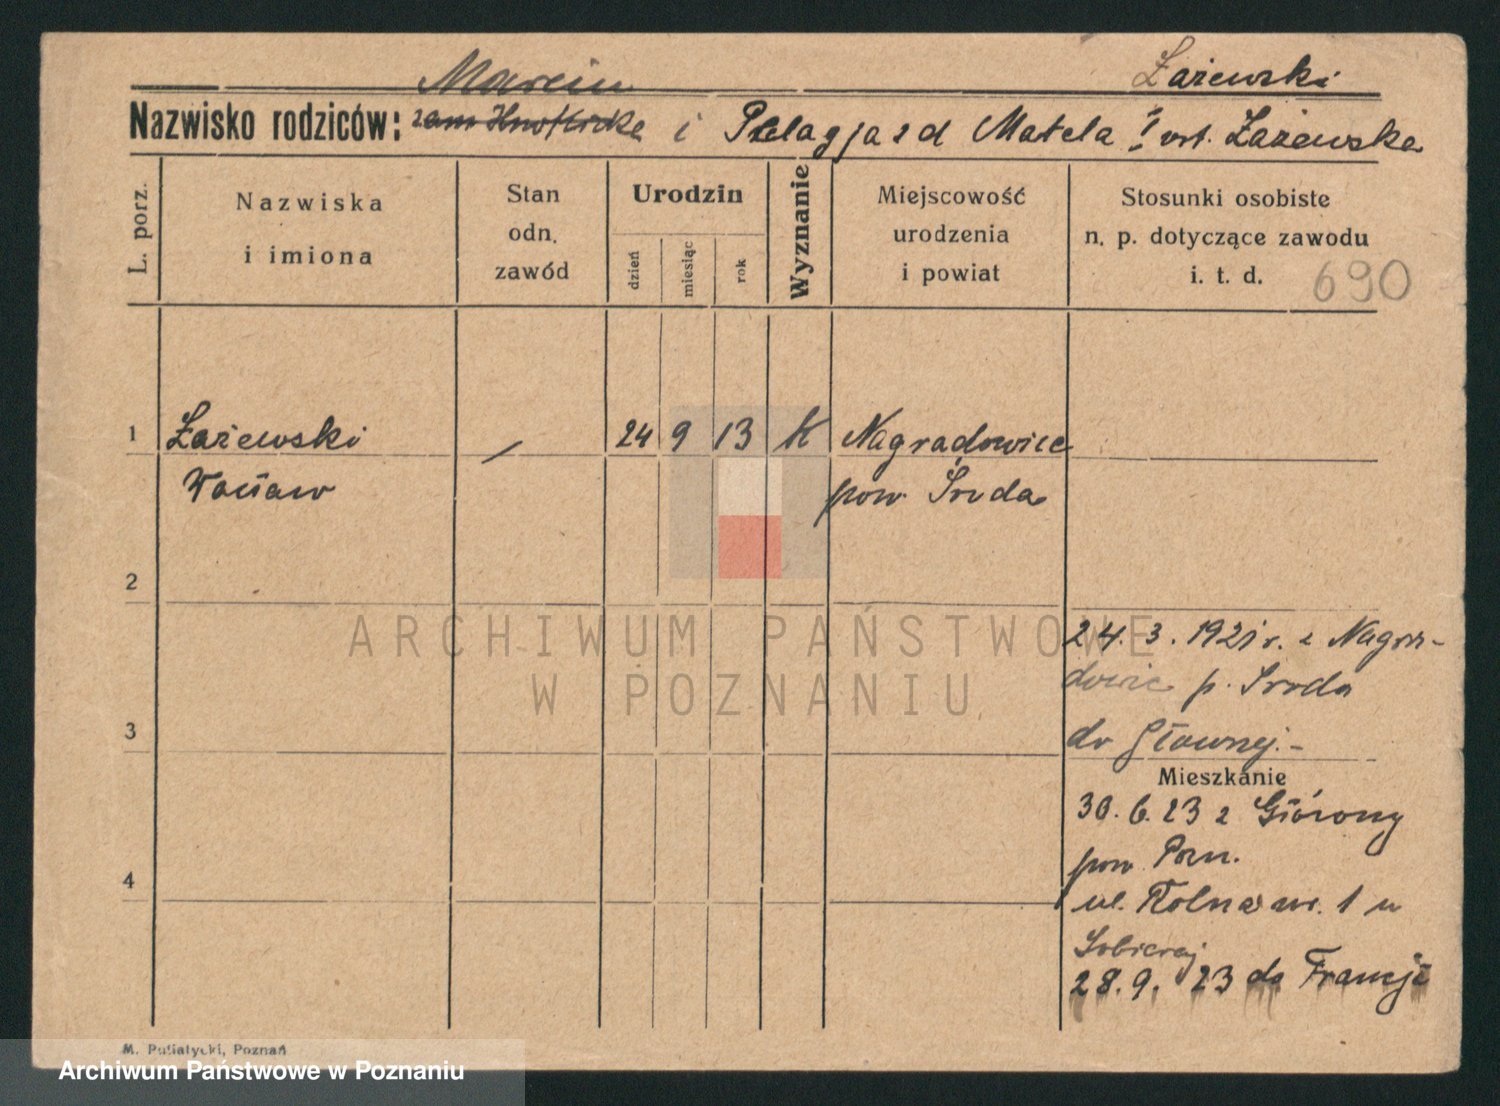 Marcin Łażewski
Nazwisko rodziców: zam i Pelagja z d Matela I vrt. Łażewska
L. porz.
Nazwiska
i imiona
Stan
odn.
zawód
Urodzin
dzień
miesiąc
rok
Wyznanie
Miejscowość
urodzenia
i powiat
Stosunki osobiste
n. p. dotyczące zawodu
i. t. d.
690
1 Łażewski – 24 9 13 K Nagradowice
Wacław pow. Środa
2
24. 3. 1921 r. z Nagra-
dowic p. Środa
3 do Głównej. –
Mieszkanie
30. 6. 23 z Główny
pow. Pozn.
4
ul. Rolna nr. 1 u
28. 9. 23 do Francji
M. Putiatycki, Poznań
ARCHIWUM PAŃSTWOWE
W POZNANIU
Archiwum Państwowe w Poznaniu